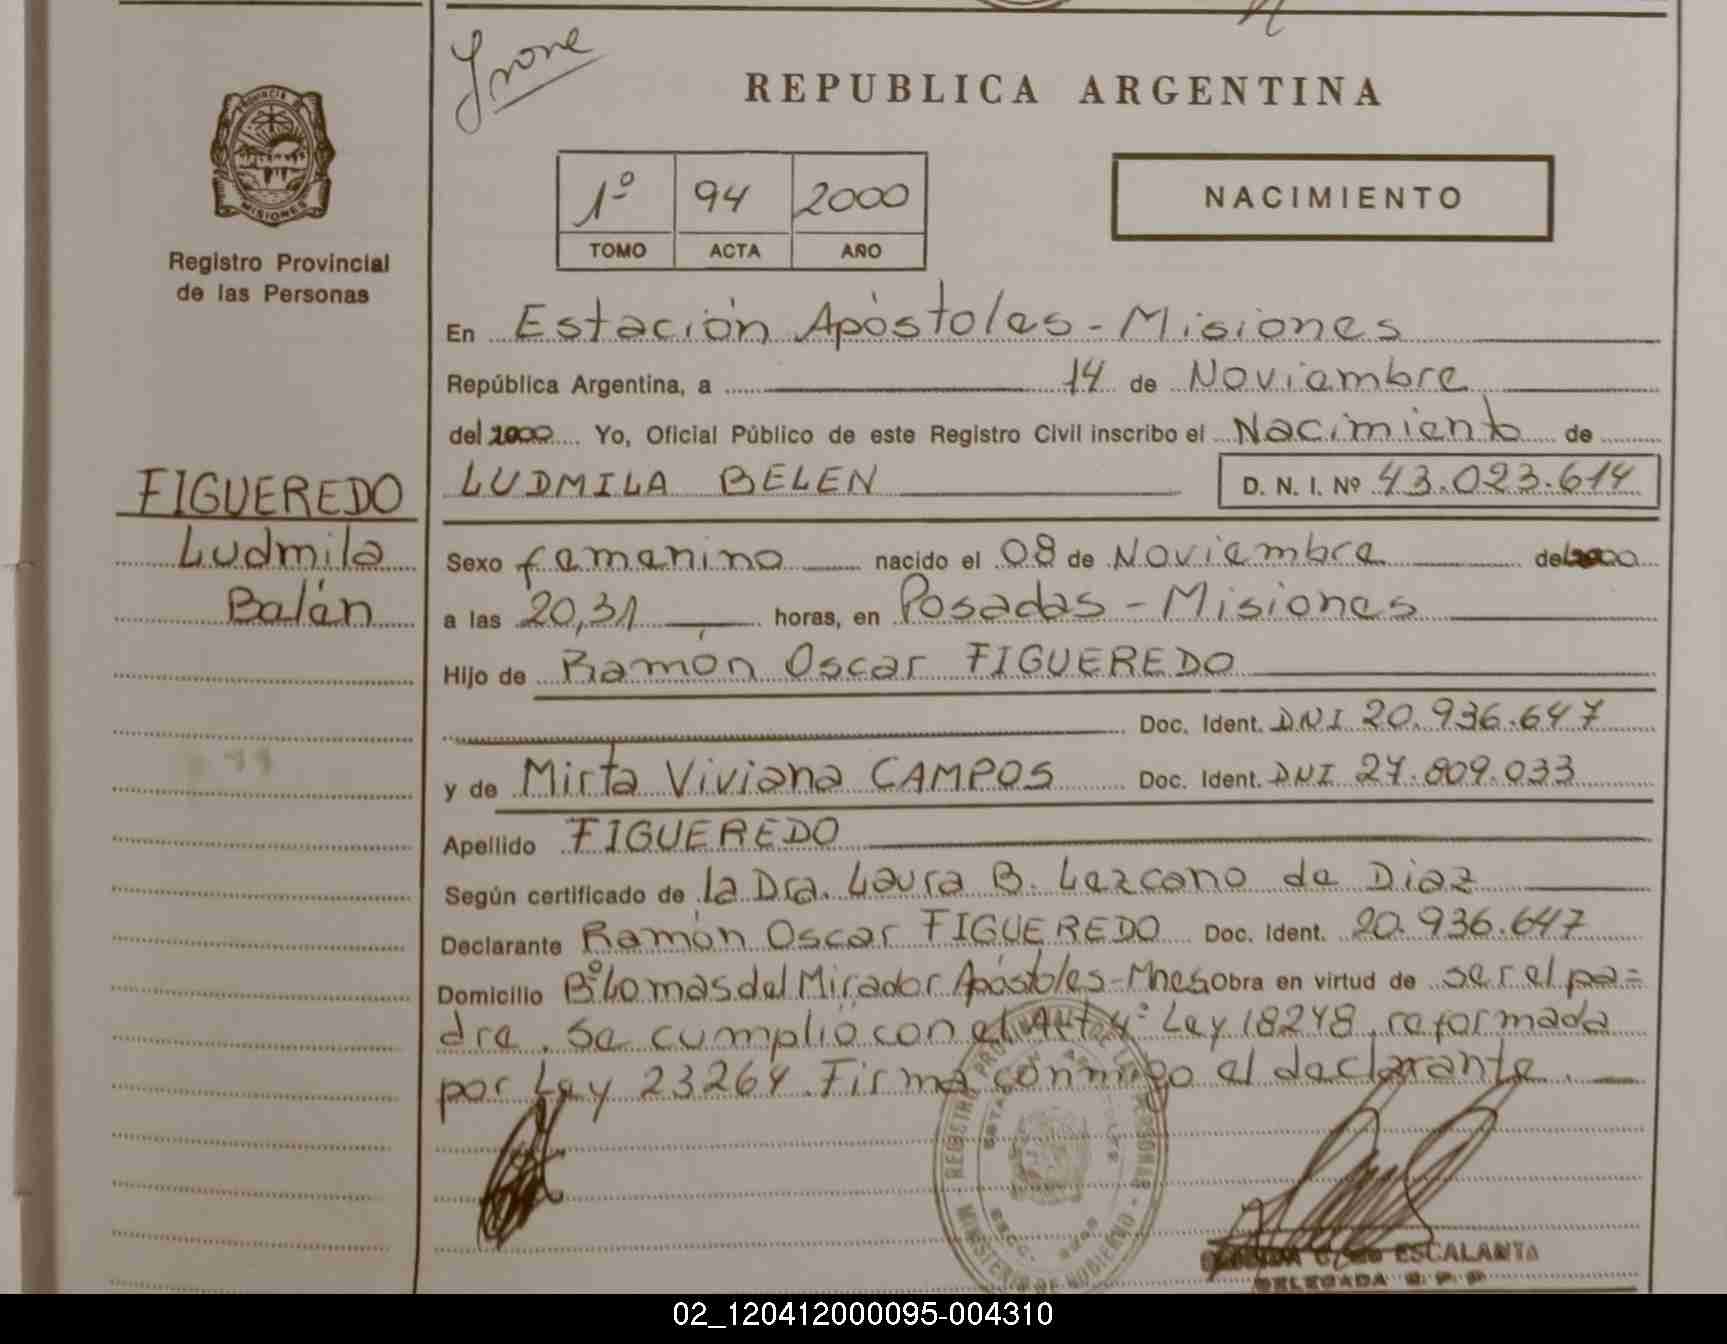 Irone
REPUBLICA ARGENTINA
PROVINCIA DE
MISIONES
Registro Provincial
de las Personas
1º 94 2000
TOMO ACTA AÑO
NACIMIENTO
En Estación Apóstoles - Misiones
República Argentina, a 14 de Noviembre
del 2000 Yo, Oficial Público de este Registro Civil inscribo el Nacimiento de
LUDMILA BELEN D. N. I. Nº 43.023.614
FIGUEREDO
Ludmila
Belén
Sexo femenino nacido el 08 de Noviembre del 2000
a las 20,31 horas, en Posadas - Misiones
Hijo de Ramón Oscar FIGUEREDO
Doc. Ident. DNI 20.936.647
y de Mirta Viviana CAMPOS Doc. Ident. DNI 27.809.033
Apellido FIGUEREDO
Según certificado de la Dra. Laura B. Lezcano de Diaz
Declarante Ramón Oscar FIGUEREDO Doc. Ident. 20.936.647
Domicilio Bº Lomas del Mirador Apóstoles-Mnes Obra en virtud de ser el pa=
dre. Se cumplió con el Art 4º Ley 18248 reformada
por Ley 23264. Firma conmigo el declarante.
REGISTRO PROVINCIAL DE LAS PERSONAS
MINISTERIO DE GOBIERNO
ESTACION APOSTOLES
ESCALANTA
DELEGADA R. P. P.
02_120412000095-004310